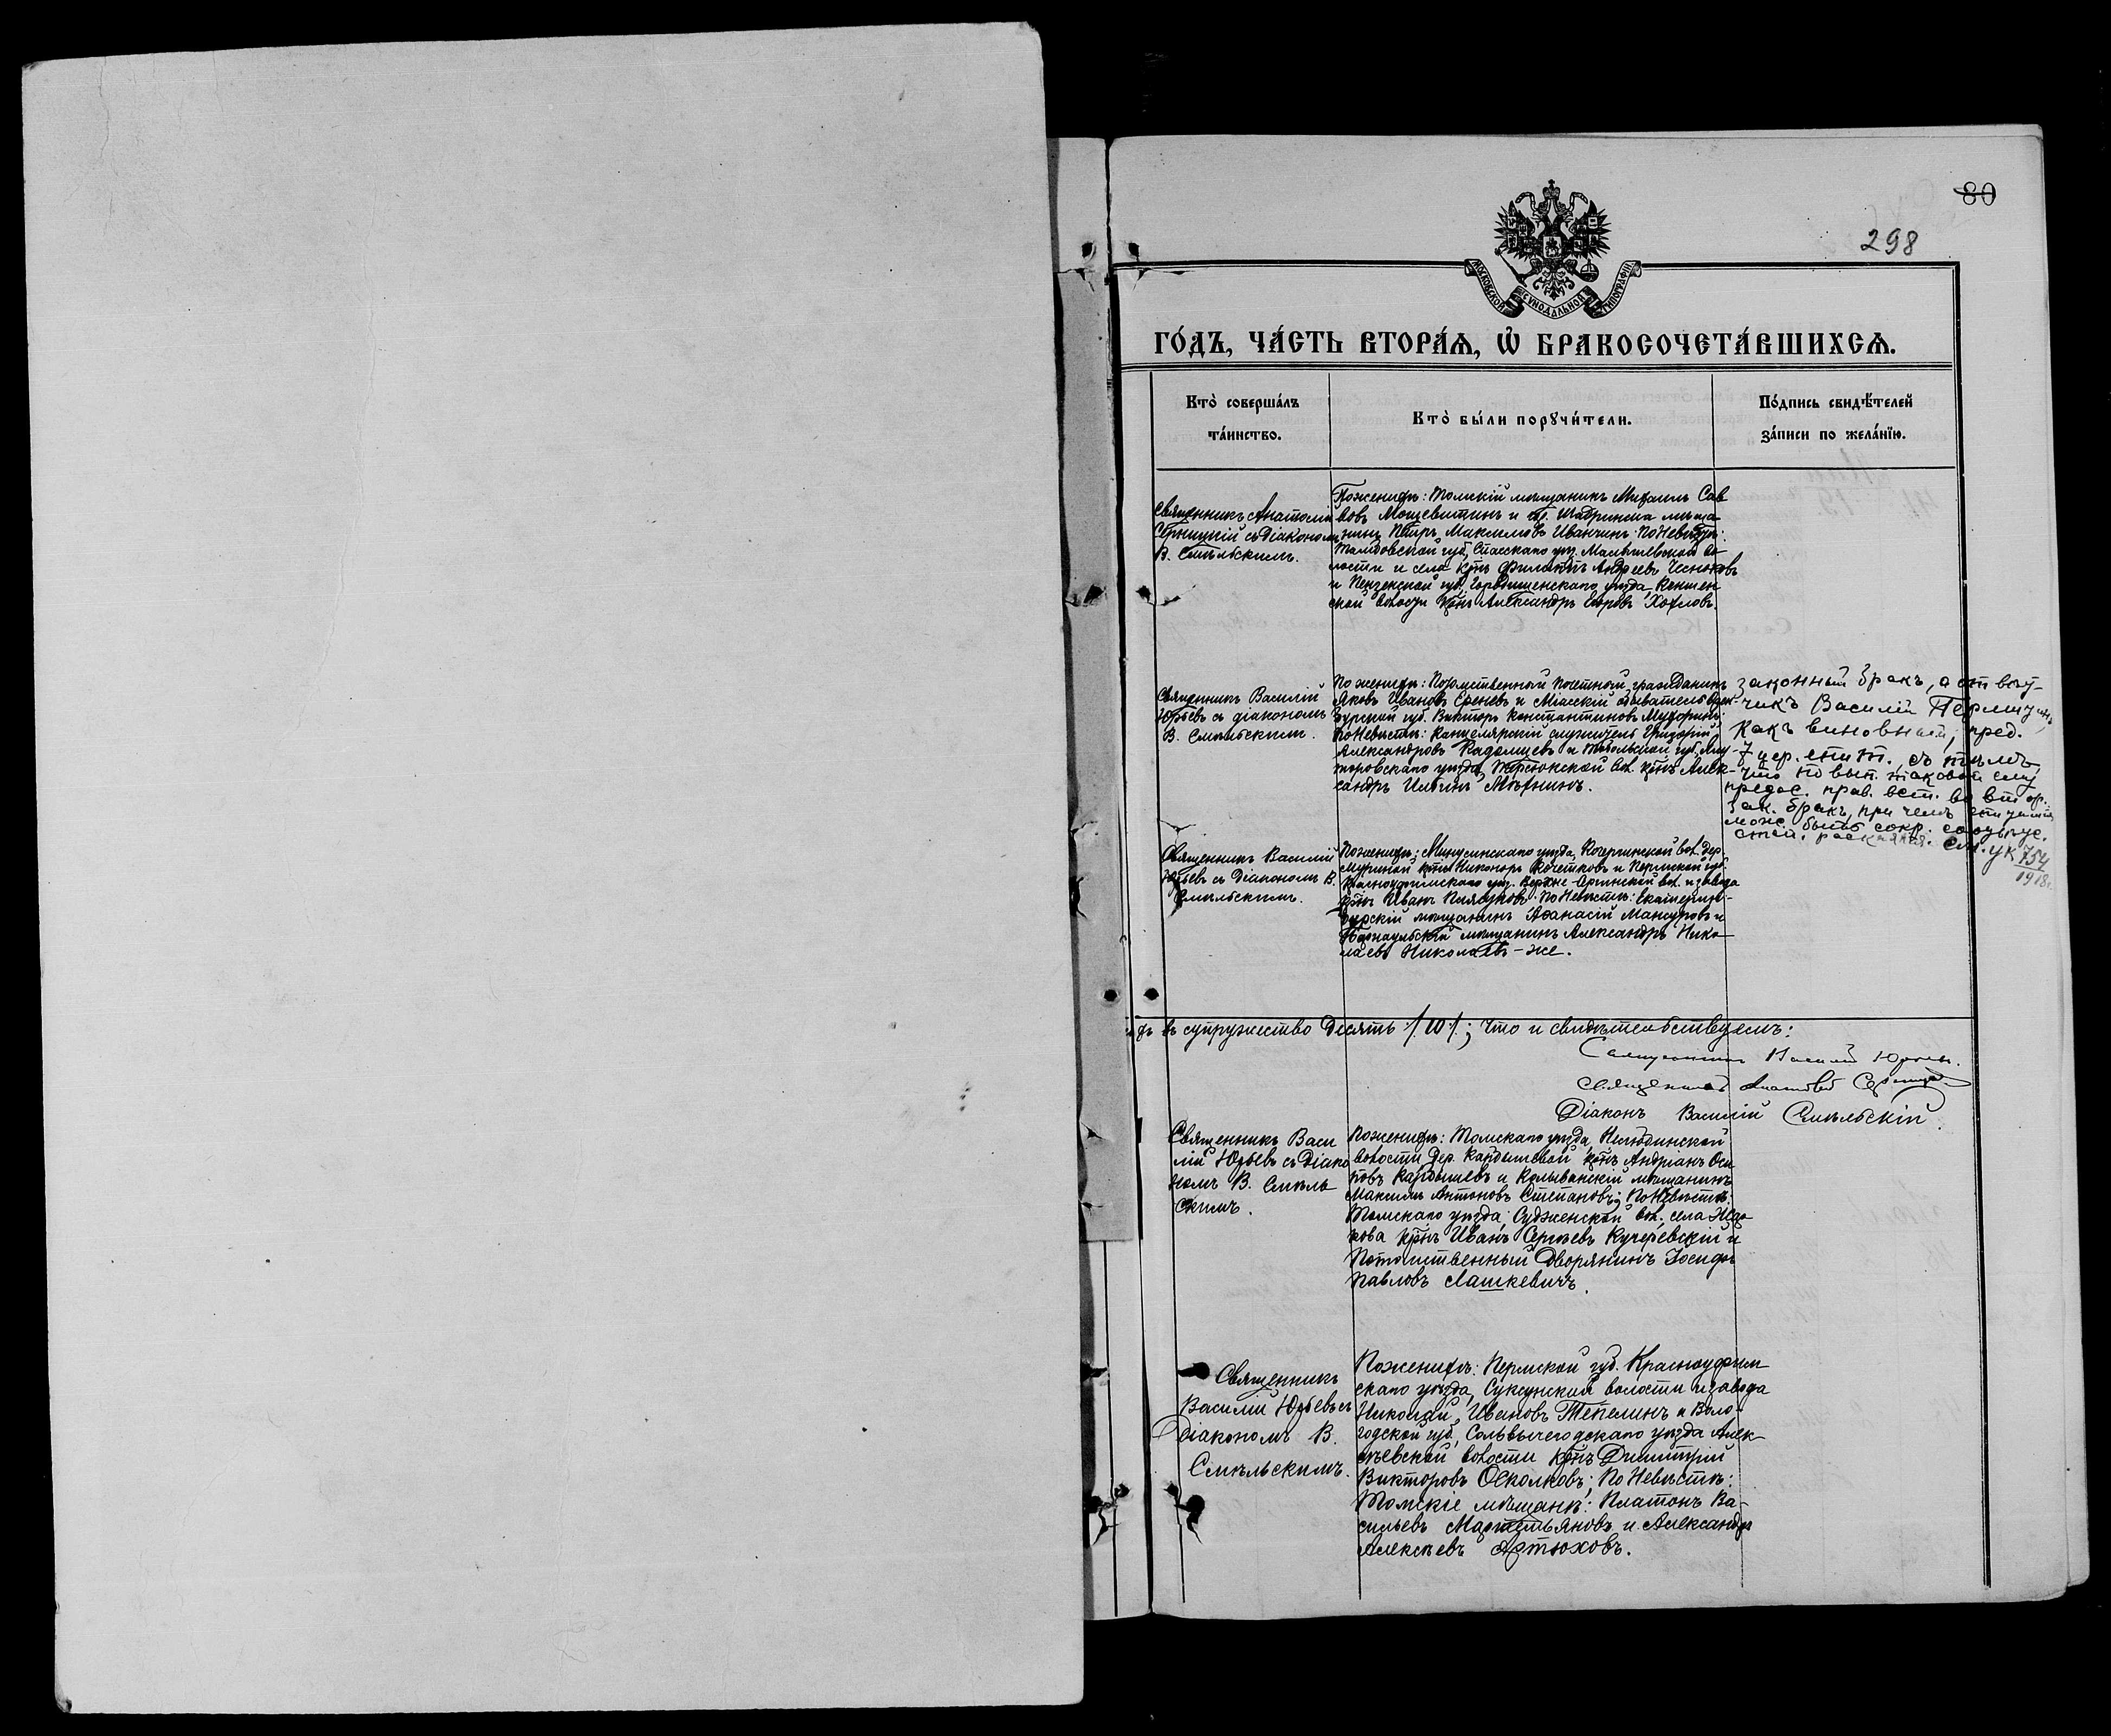 80
298
МОСКОВСКОЙ СѴНОДАЛЬНОЙ ТИПОГРАФІИ
ГО́ДЪ, ЧА́СТЬ ВТОРА́Ѧ, Ѡ҆ БРАКОСОЧЕТА́ВШИХСѦ.
Кто̀ соверша́лъ
та́инство.
Кто̀ бы́ли порꙋчи́тели.
По́дпись свидѣ́телей
за́писи по жела́нїю.
Священникъ Анатолій
съ діакономъ
В. Смѣльскимъ.
По женихѣ: Томскій мѣщанинъ Михаилъ Сав
вовъ Мощевитинъ и гор. Шадринска мѣща
нинъ Петръ Максимовъ Иванчинъ. По Невѣстѣ:
Тамбовской губ, Спасскаго уѣз. во
лости и села кр̃нъ Филиппъ Андреевъ Чесноковъ
и Пензенской губ, Городищенскаго уѣзда,
ской волости кр̃нъ Александръ Егоровъ Хохловъ.
Священникъ Василій
Юрьевъ съ діакономъ
В. Смѣльскимъ.
По женихѣ: Потомственный почетный гражданинъ
Яковъ Ивановъ Ереневъ и Міасскій обыватель Орен-
бургской губ. Викторъ Константиновъ Мухоринъ;
По Невѣстѣ: Канцелярскій служитель Григорій
Александровъ Кадомцевъ и Тобольской губ, Ялу
торовскаго уѣзда, вол. кр̃нъ Алек-
сандръ Ильинъ
законный бракъ, а
Василій
какъ виновный, пред.
7 цер. епит., съ тѣмъ,
что по вып. таковой ему
предос. прав. вст. во втор.
зак. бракъ, при чемъ
може быть сокр.
раскаянія. см. ук 754
1918г.
Священникъ Василій
Юрьевъ съ Діакономъ В.
Смѣльскимъ.
По женихѣ: Минусинскаго уѣзда, вол. дер.
кр̃нъ Никоноръ Кочетковъ и Пермской губ.
Красноуфимскаго уѣз. Верхне-Сергинской вол. и завода
кр̃нъ Иванъ Плясуновъ. По Невѣстѣ: Екатерин-
бургскій мѣщанинъ Аѳанасій Мансуровъ и
Барнаульскій мѣщанинъ Александръ Нико
лаевъ Николаевъ-же.
въ супружество десять /10/; что и свидѣтельствуемъ:
Священникъ Василій Юрьевъ.
Священникъ Анатолій
Діаконъ Василій Смѣльскій.
Священникъ Васи
лій Юрьевъ съ Діако
номъ В. Смѣль
скимъ.
По женихѣ: Томскаго уѣзда, Нелюбинской
волости, дер. Кандышевой кр̃нъ Андріанъ Оси
повъ и Колыванскій мѣщанинъ
Максимъ Антоновъ Степановъ; По Невѣстѣ:
Томскаго уѣзда, Судженской вол. села
кова кр̃нъ Иванъ Сергѣевъ Кучеревскій и
Потомственный Дворянинъ Іосифъ
Павловъ Лашкевичъ.
Священникъ
Василій Юрьевъ съ
Діакономъ В.
Смѣльскимъ.
По женихѣ: Пермской губ. Красноуфим
скаго уѣзда, Суксунской волости и завода
Николай Ивановъ Тепелинъ и Воло-
годской губ, Сольвычегодскаго уѣзда Алек-
сѣевской волости кр̃нъ Димитрій
Викторовъ Осколковъ; По Невѣстѣ:
Томскіе мѣщане: Платонъ Ва-
сильевъ Мартемьяновъ и Александръ
Алексѣевъ Артюховъ.